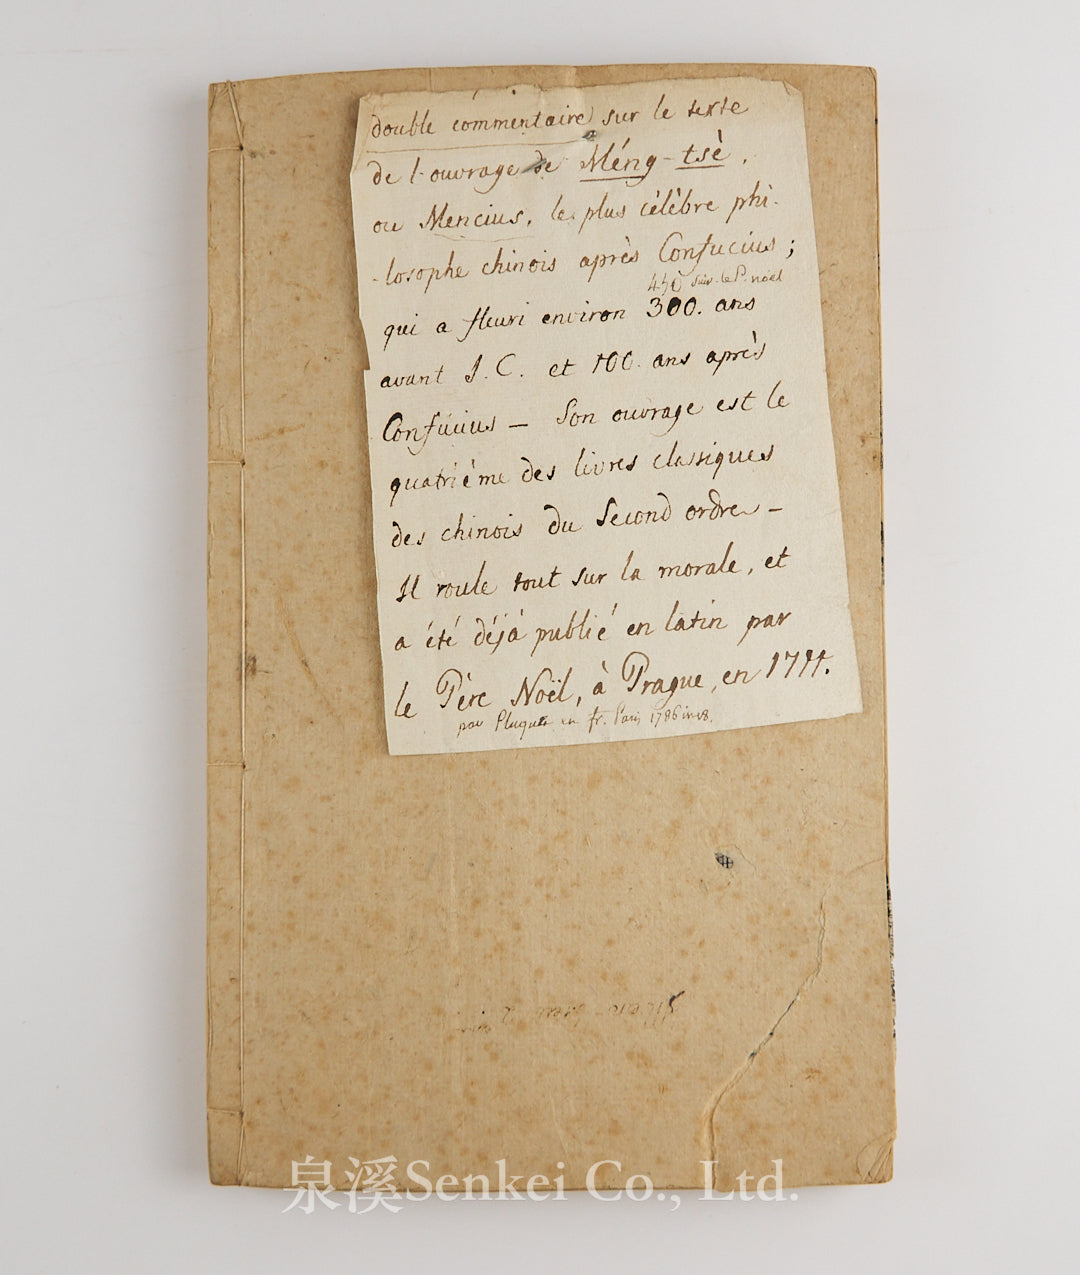 double commentaire sur le texte
de l'ouvrage de Méng-tsè,
ou Mencius, le plus célèbre phi-
-losophe chinois après Confucius;
450 suiv. le P. noël
qui a fleuri environ 300. ans
avant J. C. et 100. ans après
Confucius — Son ouvrage est le
quatriéme des livres classiques
des chinois du Second ordre —
Il roule tout sur la morale, et
a été déjà publié en latin par
le Père Noël, à Prague, en 1711.
par Pluquet en fr. Paris 1786 in 18.
泉溪Senkei Co., Ltd.